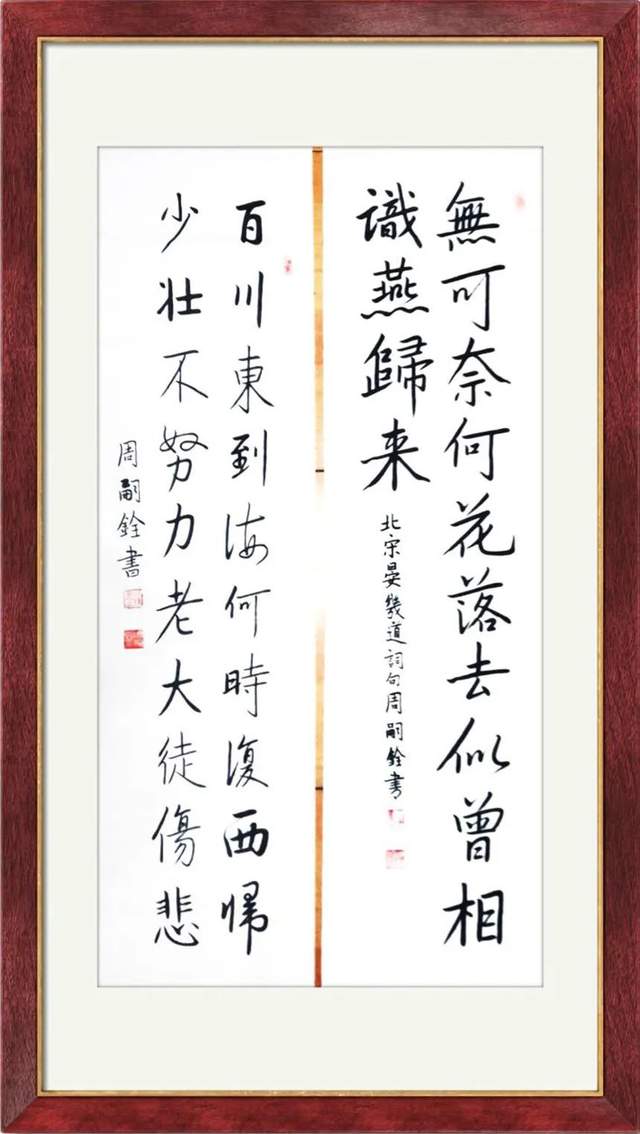 無可奈何花落去似曾相
識燕歸来
北宋晏幾道詞句周嗣銓書
百川東到海何時復西歸
少壯不努力老大徒傷悲
周嗣銓書